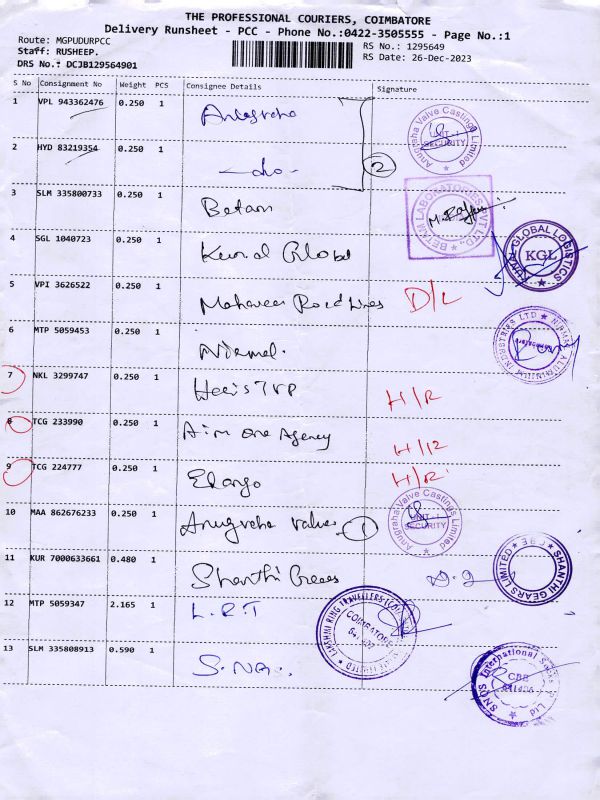 THE PROFESSIONAL COURIERS, COIMBATORE
Delivery Runsheet - PCC - Phone No.:0422-3505555 - Page No.:1
Route: MGPUDURPCC
RS No.: 1295649
Staff: RUSHEEP.
RS Date: 26-Dec-2023
DRS No.: DCJB129564901
S No Consignment No Weight PCS Consignee Details Signature
1 VPL 943362476 0.250 1
Anugraha Valve Castings Limited UNIT - I SECURITY
2 HYD 83219354 0.250 1 -do- 2
3 SLM 335800733 0.250 1 Betam
BETAM LABORATORIES PVT LTD.,
4 SGL 1040723 0.250 1 Kunal Global
KUNAL GLOBAL LOGISTICS KGL
5 VPI 3626522 0.250 1 Mahaveer Roadlines D/L
6 MTP 5059453 0.250 1 Nirmal.
NIRMAL ALUMINIUM INDUSTRIES LTD
7 NKL 3299747 0.250 1 H/R
8 TCG 233990 0.250 1 Aim one Agency H/R
9 TCG 224777 0.250 1 Elango H/R
10 MAA 862676233 0.250 1 Anugraha valves 1
Anugraha Valve Castings Limited UNIT - I SECURITY
11 KUR 7000633661 0.480 1 Shanthi Gears
SHANTHI GEARS LIMITED
12 MTP 5059347 2.165 1 L.R.T
LAKSHMI RING TRAVELLERS COIMBATORE LIMITED
13 SLM 335808913 0.590 1 S.NQ.
SNQS International Socks P Ltd